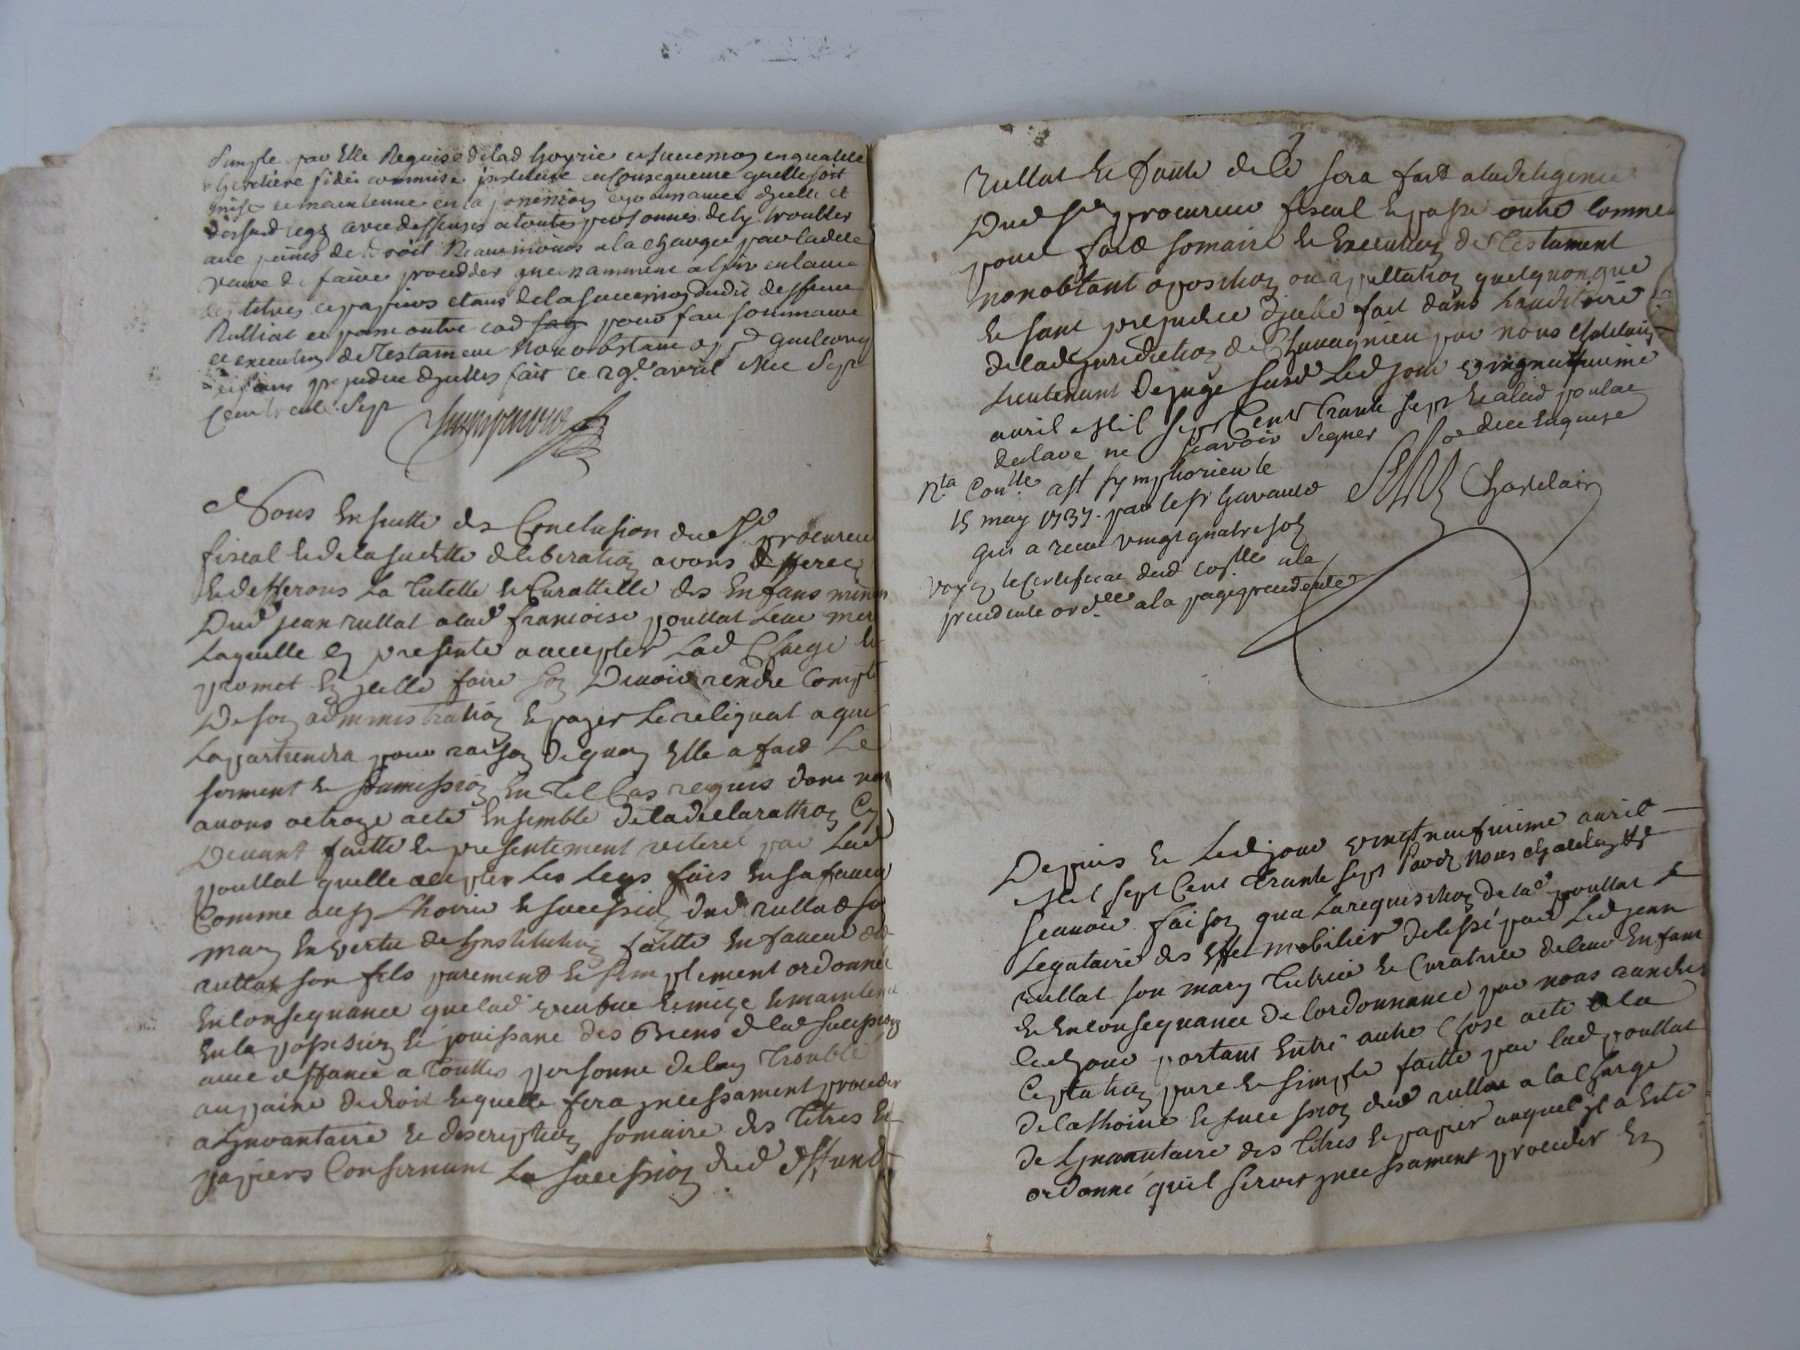 simple par Elle Requise delad hoyrie et succession en qualité
heritiere fidei commise instituee en Consequence quelle soit
mise et maintenue en la possession et jouissance dycelle et
desfend avec deffenses a toutes personnes de ly troubler
aux peines de droit Neanmoins a la charge par ladite
veuve de faire proceder incessamment a linventaire
des titres et papiers etans de la succession dudit deffunt
Rullat et passe outre pour fait sommaire
et execution de Testament Nonobstant opp.on quelconq
et sans prejudice dycelles fait ce 29e avril Mil Sept
Cent trente Sept
Nous En suitte des Conclusion dud Sr procureur
fiscal Et de la susditte deliberation avons defferes
Et defferons La Tutelle Et Curattelle des Enfans mineurs
Dud jean rullat alad francoise poullat Leur mere
Laquelle Ey presente a accepter Lad Charge Et
promet En ycelle faire son Devoir rendre Compte
De son administration Et payer Le reliquat a qui
Lapartiendra pour raison de quoy Elle a fait Le
serment Et soumission En Tel Cas requis dont nous
avons octroye acte Ensemble de la declarathion Cy
Devant faitte Et presentement reiteré par Lad
poullat quelle accepter Les Legs fais En sa faveur
Comme aussy Lhoirie Et succession dud rullat son
mary En vertu de Linstitution faitte En faveur de
rullat son fils purement Et simplement ordonné
En Consequance que lad veufve Est mize Et maintenue
En la possession Et jouissance des Biens de lad succession
avec deffance a Touttes personne de luy Troublé
au paine de droit laquelle fera incessament proceder
a Linvantaire Et description somaire des Titres Et
papiers Consernant La succession dud deffunt
rullat Et faute de Ce sera fait a la deligence
Dud Sr procureur fiscal Et passé outre Comme
pour fait somaire Et Execution de Testament
nonobtant oposithon ou apellation quelquonque
Et sant prejudice dycelle fait dans Lauditoire
de lad Juridiction de Chavagnieu par nous Chatelain
Lieutenant De juge susd Led jour vingtneufuieme
avril Mil sept Cent Trante sept Et alad poulat
declare ne scavoir signer de ce Enquise
Chastelain
Nta Conlle a St symphorien le
15 may 1737. par le sr Gavault
qui a receu vingt quatre sols
voyez le Certificat dud Con.lle a la
precedente ord.ce a la page precedente
Depuis Et Led jour vingt neufuieme avril
Mil sept Cent Trante sept Pardt Nous Chatelain
scavoir faison qua La requisition de lad poullat
Legataire des Effet mobilier delessé par Led jean
rullat son mary Tutrice Et Curatrice de leur Enfant
Et En Consequance de Lordonnance par nous randue
Ced jour portant Entre autre Chose acte de la
Ceptation pure Et simple faitte par lad poullat
de Lashoirie Et succession dud rullat a la Charge
de Linvantaire des Titres Et papier auquel il a Esté
ordonné quil seroit incessament proceder En